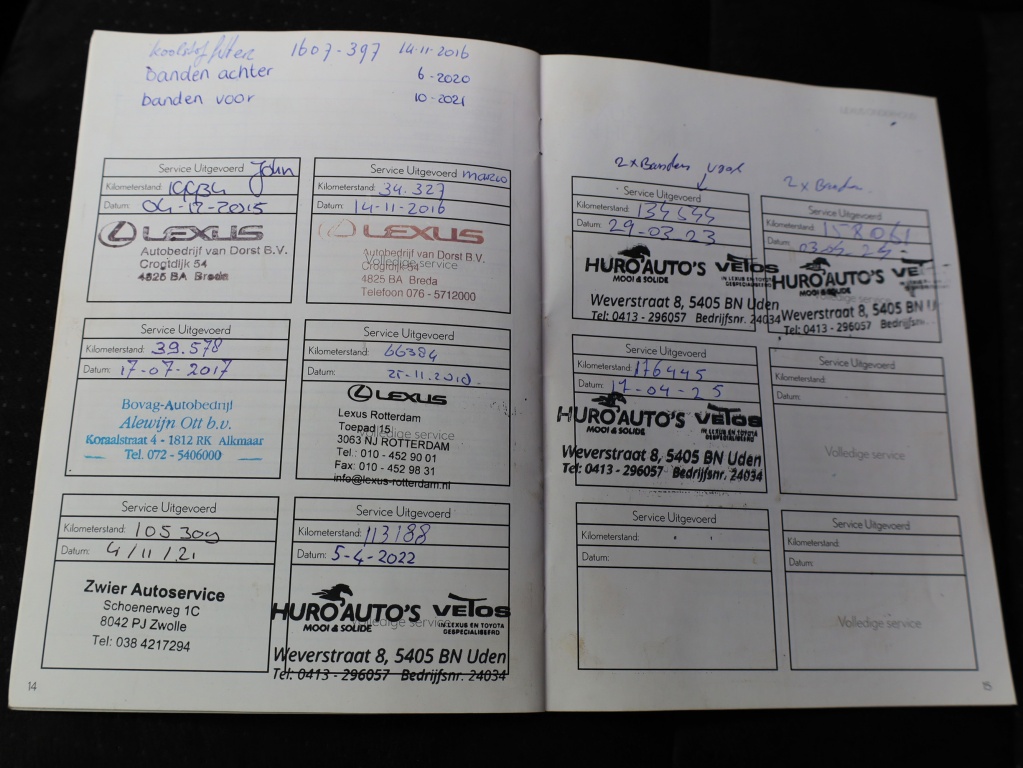 koolstof filter 1607-397 14-11-2016
banden achter 6-2020
banden voor 10-2021
Service Uitgevoerd John
Kilometerstand:
Datum: 04-12-2015
LEXUS
Autobedrijf van Dorst B.V.
Crogtdijk 54
4825 BA Breda
Service Uitgevoerd marco
Kilometerstand: 34.327
Datum: 14-11-2016
LEXUS
Autobedrijf van Dorst B.V.
Volledige service
Crogtdijk 54
4825 BA Breda
Telefoon 076 - 5712000
Service Uitgevoerd
Kilometerstand: 39.578
Datum: 17-07-2017
Bovag-Autobedrijf
Alewijn Ott b.v.
Koraalstraat 4 - 1812 RK Alkmaar
Tel. 072 - 5406000
Service Uitgevoerd
Kilometerstand: 66384
Datum:
LEXUS
Lexus Rotterdam
Toepad 15
Volledige service
3063 NJ ROTTERDAM
Tel: 010 - 452 90 01
Fax: 010 - 452 98 31
info@lexus-rotterdam.nl
Service Uitgevoerd
Kilometerstand: 105309
Datum: 4/11/21
Zwier Autoservice
Schoenerweg 1C
8042 PJ Zwolle
Tel: 038 4217294
Service Uitgevoerd
Kilometerstand: 113188
Datum: 5-4-2022
HURO AUTO'S VETOS
MOOI & SOLIDE IN LEXUS EN TOYOTA GESPECIALISEERD
Volledige service
Weverstraat 8, 5405 BN Uden
Tel: 0413 - 296057 Bedrijfsnr. 24034
14
LEXUS ONDERHOUD
2x Banden
Service Uitgevoerd
Kilometerstand:
Datum: 29-03-23
HURO AUTO'S VETOS
MOOI & SOLIDE
Weverstraat 8, 5405 BN Uden
Tel: 0413 - 296057 Bedrijfsnr. 24034
2x
Service Uitgevoerd
Kilometerstand: 158061
Datum:
HURO AUTO'S VET
MOOI & SOLIDE
Volledige service
Weverstraat 8, 5405 BN U
Tel: 0413 - 296057 Bedrijfsn.
Service Uitgevoerd
Kilometerstand: 176445
Datum: 17-04-25
HURO AUTO'S VETOS
MOOI & SOLIDE IN LEXUS EN TOYOTA GESPECIALISEERD
Weverstraat 8, 5405 BN Uden
Tel: 0413 - 296057 Bedrijfsnr. 24034
Service Uitgevoerd
Kilometerstand:
Datum:
Volledige service
Service Uitgevoerd
Kilometerstand:
Datum:
Service Uitgevoerd
Kilometerstand:
Datum:
Volledige service
15